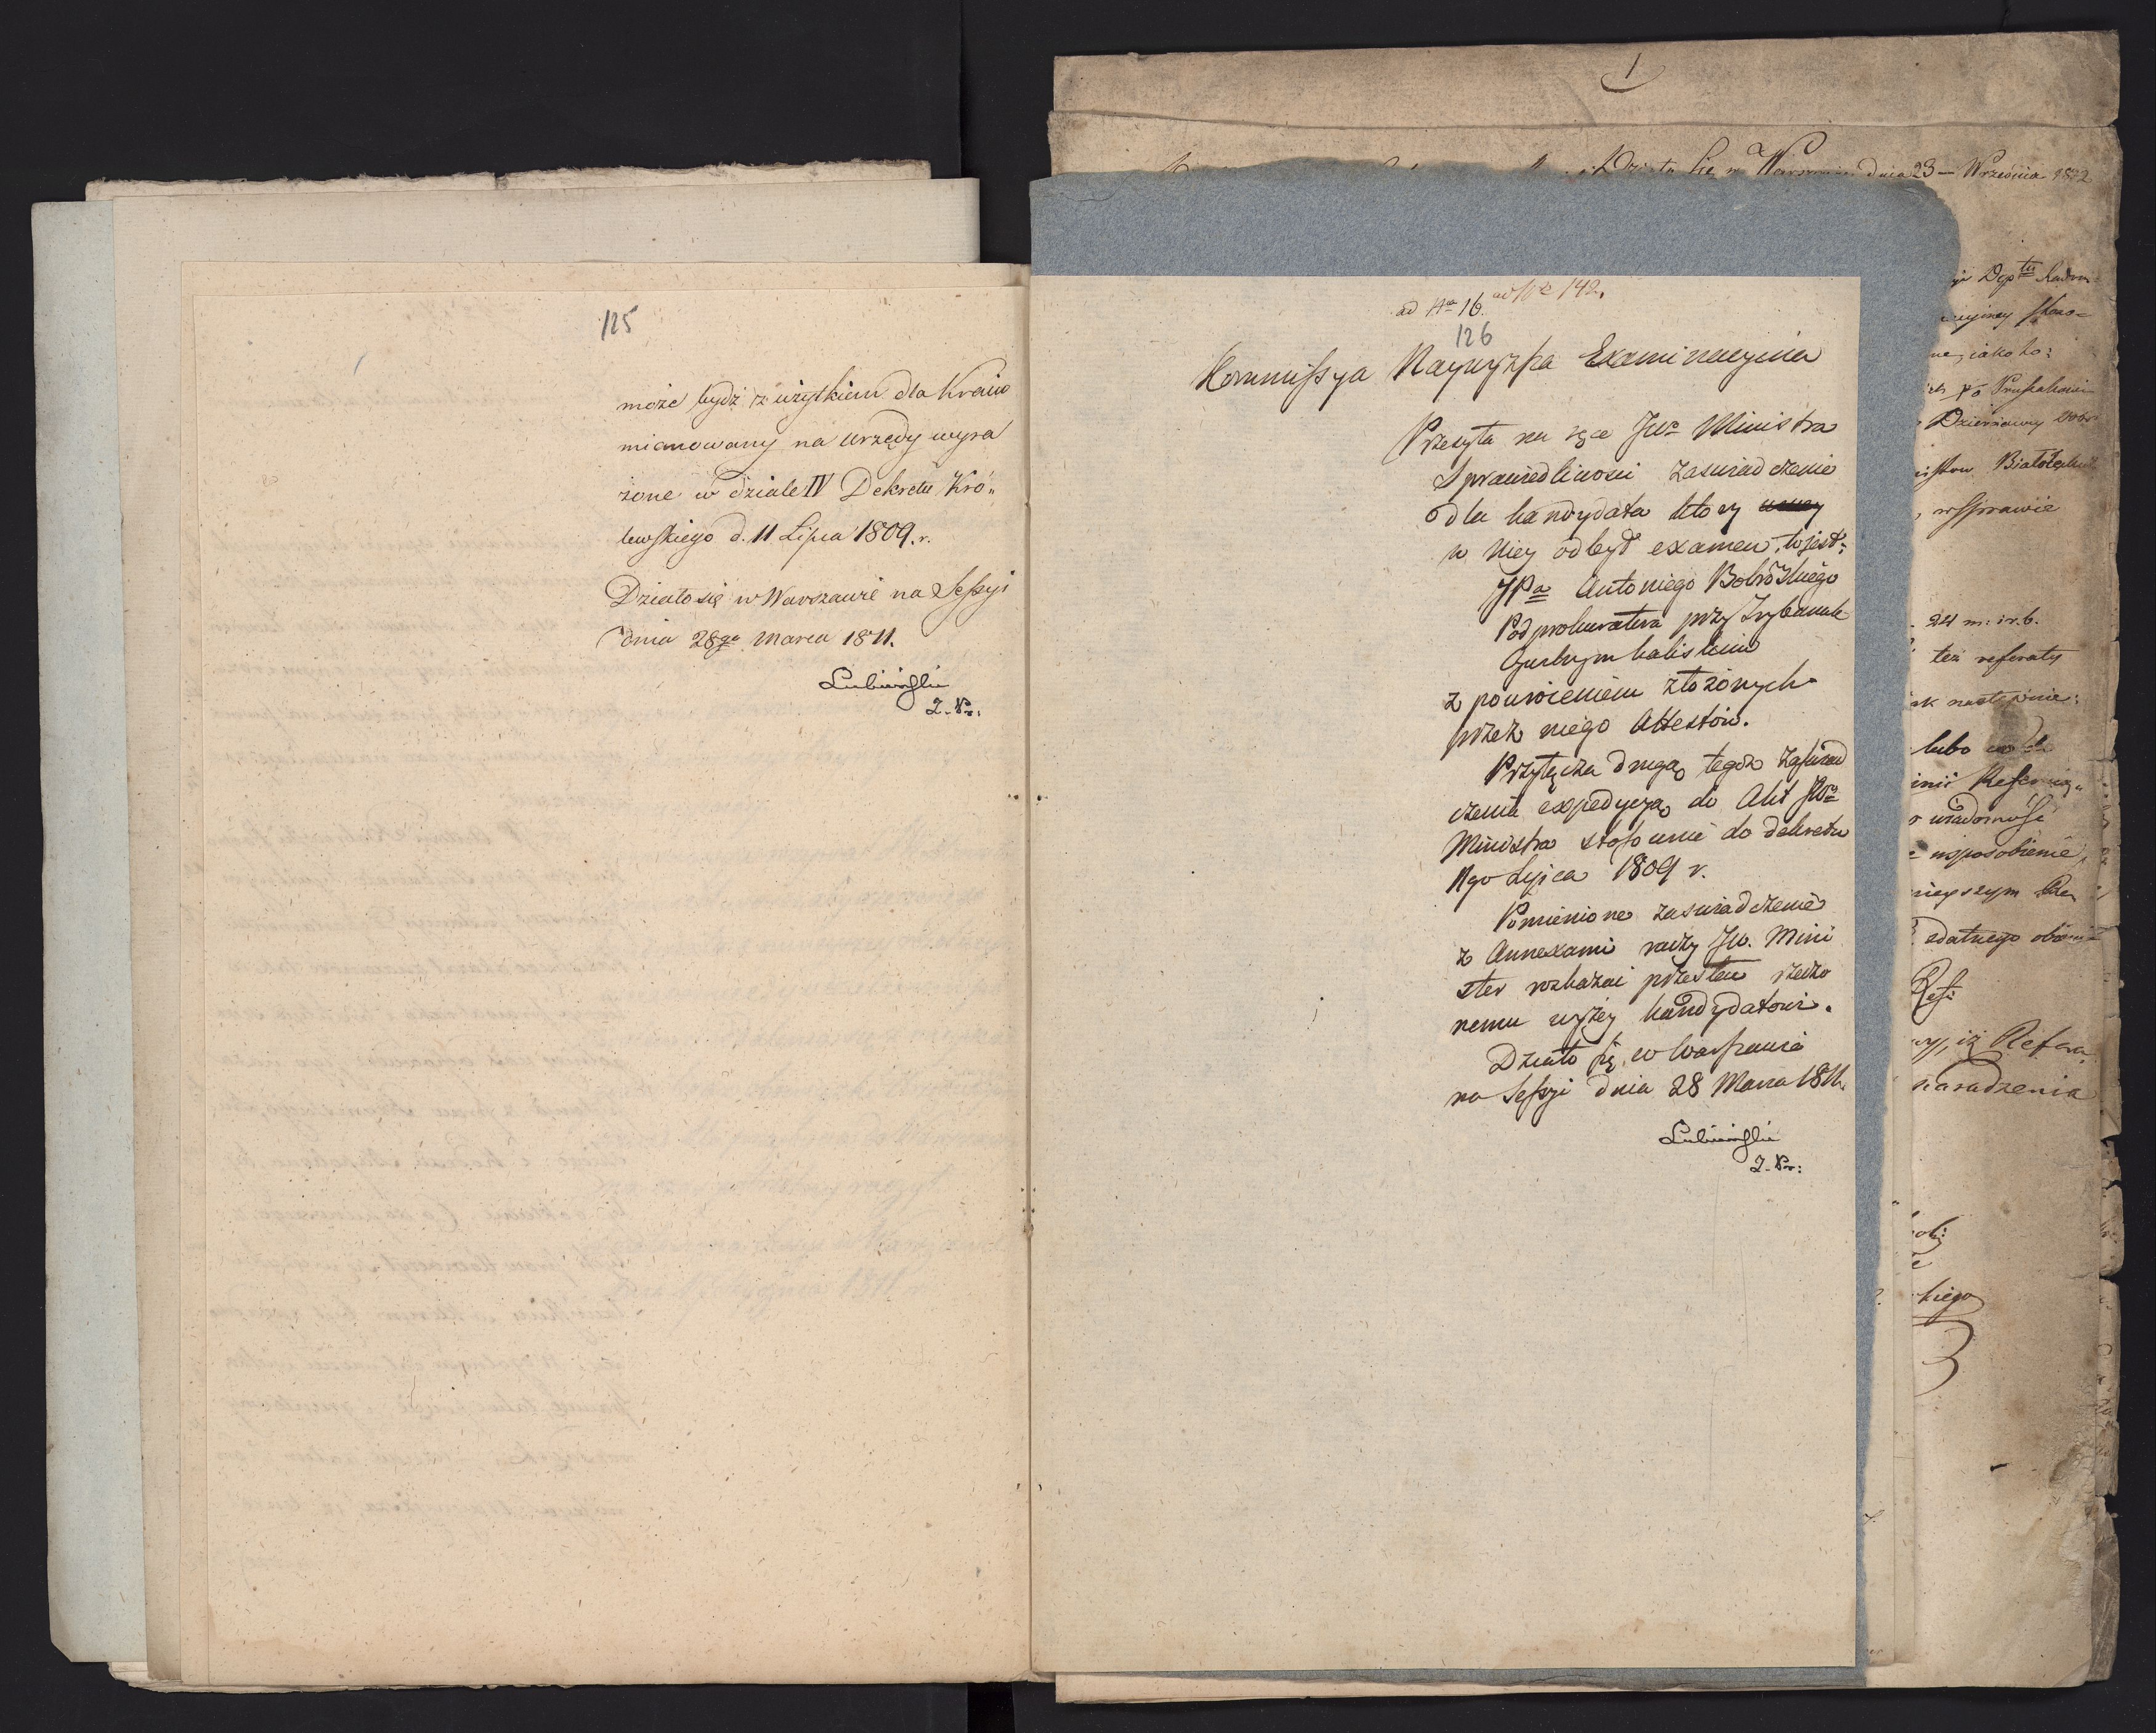 125
może bydź z użytkiem dla Kraiu
mianowany na urzędy wyra
żone w dziale IV Dekretu Kró„
lewskiego d. 11 Lipca 1809. r.
Działo się w Warszawie na Sessyi
dnia 28go Marca 1811.
Lubieński
Z. Pr:
ad Nra 16. ad Nr 142.
126
Kommissya Naywyższa Examinacyina
Przesyła na ręce JWo Ministra
Sprawiedliwosci zaswiadczenie
dla kandydata ktory
w niey odbył examen, to jest:
JPa Antoniego Bobrowskiego
Podprokuratora przy Trybunale
Cywilnym Kaliskim
z powróceniem złożonych
przez niego Attestów.
Przyłącza drugą tegoż zaswiad
czenia expedycyą do Akt JWo
Ministra stosownie do dekretu
11go Lipca 1809 r.
Pomienione zaswiadczenie
z Annexami raczy JW. Mini
ster rozkazać przesłać rzeczo
nemu wyżey kandydatowi.
Działo się w Warszawie
na Sessyi dnia 28 Marca 1811.
Lubieński
Z. Pr:
1
Działo się w Warszawie dnia 23 – Września 1812
Dept
iako to:
Dzierżawy
w sprawie
24 m: i r. b.
też referaty
nastepnie:
lubo
wiadomość
usposobienie,
Ref:
iż Refer
naradzenia
kiego